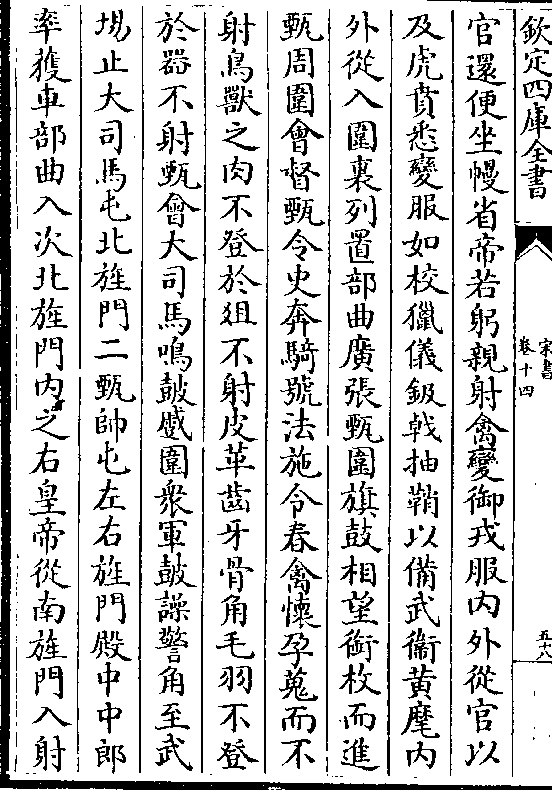 欽定四庫全書
宋書
卷十四
五十八
官還便坐幔省帝若躬親射禽變御戎服内外從官以
及虎賁悉變服如校獵儀鈒㦸抽鞘以備武衛黄麾内
外從入圍裏列置部曲廣張甄圍旗鼓相望銜枚而進
甄周圍會督甄令史奔騎號法施令春禽懷孕蒐而不
射鳥獸之肉不登於俎不射皮革齒牙骨角毛羽不登
於器不射甄會大司馬鳴鼓蹙圍衆軍鼓譟警角至武
場止大司馬屯北旌門二甄帥屯左右旌門殿中中郎
率獲車部曲入次北旌門内之右皇帝從南旌門入射